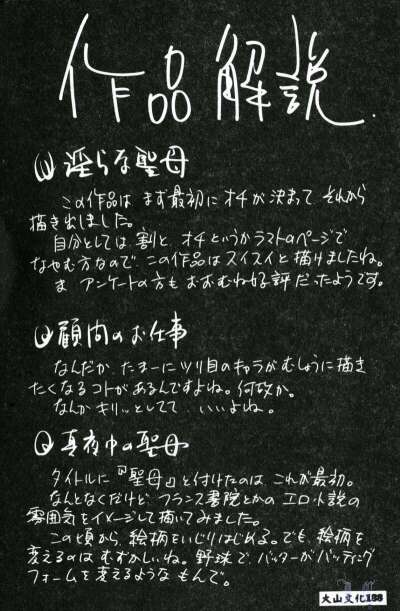 作品解説.
淫らな聖母
この作品は まず最初に オチが 決まって それから
描き出しました。
自分としては 割と、オチというかラストのページで
なやむ方なので この作品はスイスイと描けましたね。
ま アンケートの方も おおむね好評だったようです。
顧問のお仕事
なんだか たまーに ツリ目のキャラが むしょうに描き
たくなるコトがあるんですよね。何故か。
なんか キリッとしてて‥いいよね。
真夜中の聖母
タイトルに『聖母』と付けたのは これが最初。
なんとなくだけど フランス書院とかの エロ小説の
雰囲気をイメージして描いてみました。
この頃から、絵柄をいじりはじめる。でも、絵柄を
変えるのは むずかしいね。野球で、バッターが バッティング
フォームを変えるような もんで。
大山文化188